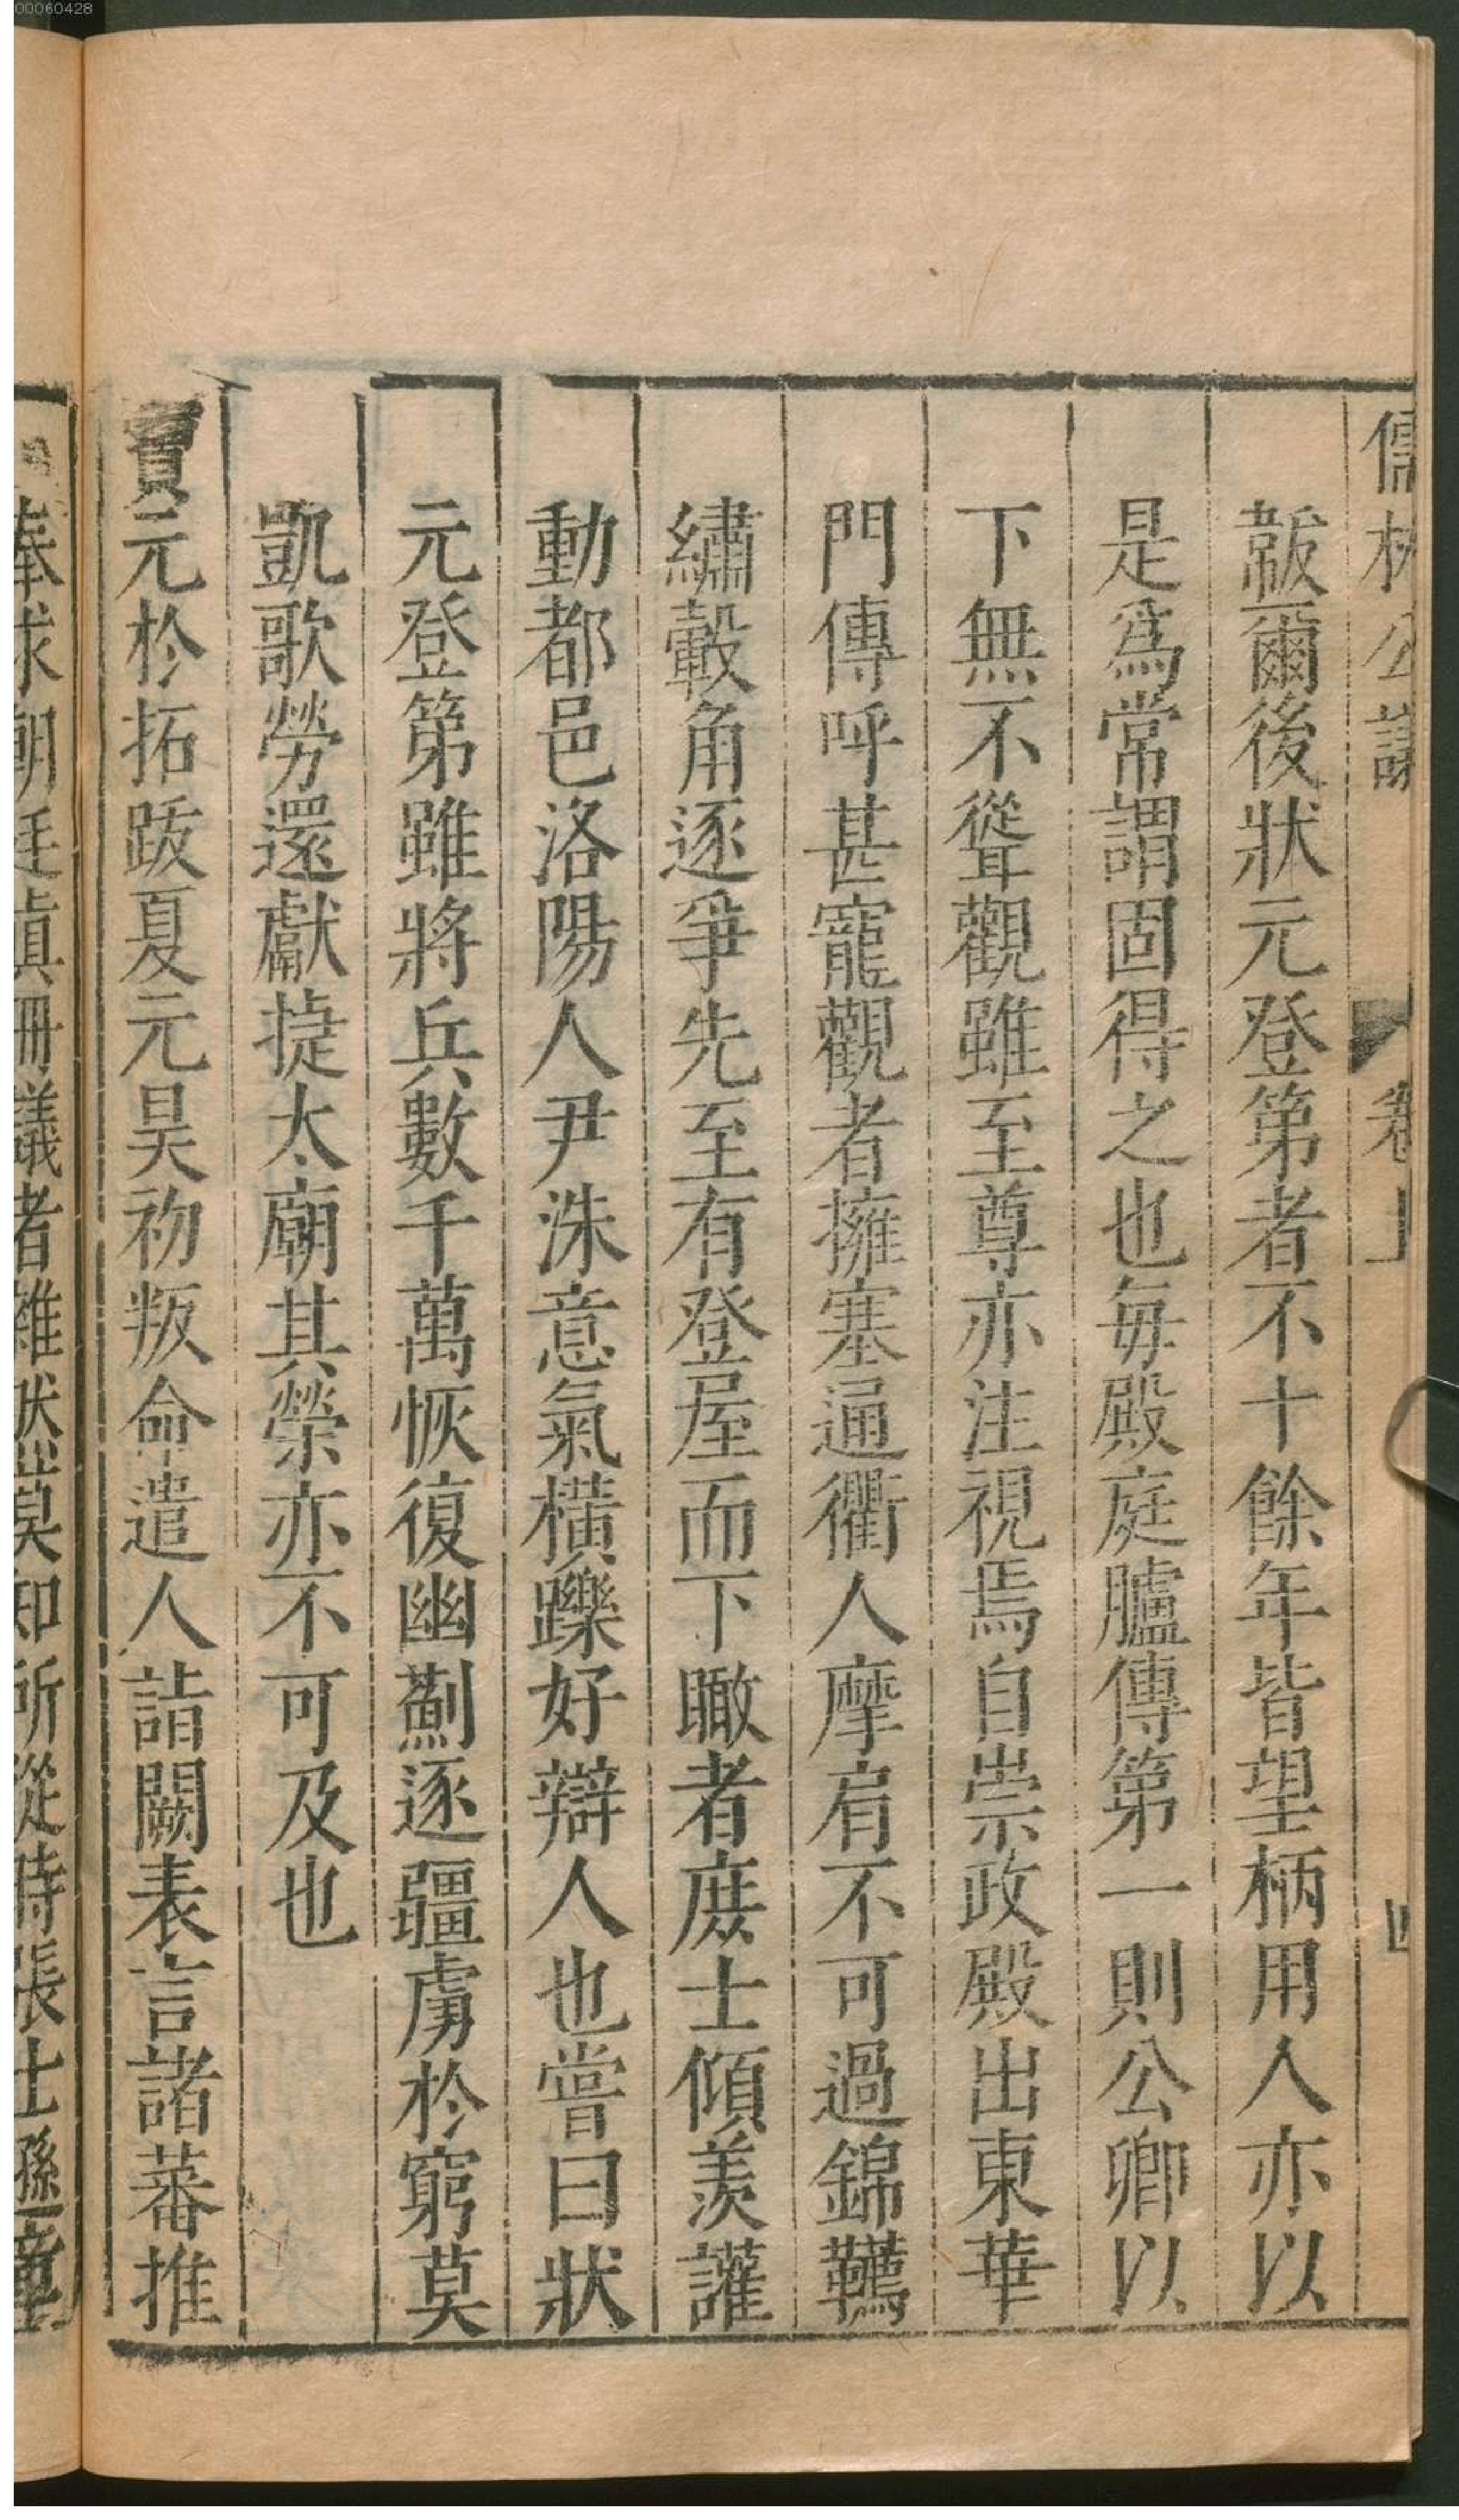 00060428
儒林公議 卷上 四
韍爾後狀元登第者不十餘年皆望柄用人亦以
是爲常謂固得之也每殿庭臚傳第一則公卿以
下無不聳觀雖至尊亦注視焉自崇政殿出東華
門傳呼甚寵觀者擁塞通衢人摩肩不可過錦韉
繡轂角逐爭先至有登屋而下瞰者庶士傾羨讙
動都邑洛陽人尹洙意氣橫躒好辯人也嘗曰狀
元登第雖將兵數千萬恢復幽薊逐疆虜於窮莫
凱歌勞還獻捷太廟其榮亦不可及也
寶元於拓跋夏元昊初叛命遣人詣闕表言諸蕃推
奉求朝廷真冊議者雜然莫知所從時張士遜章